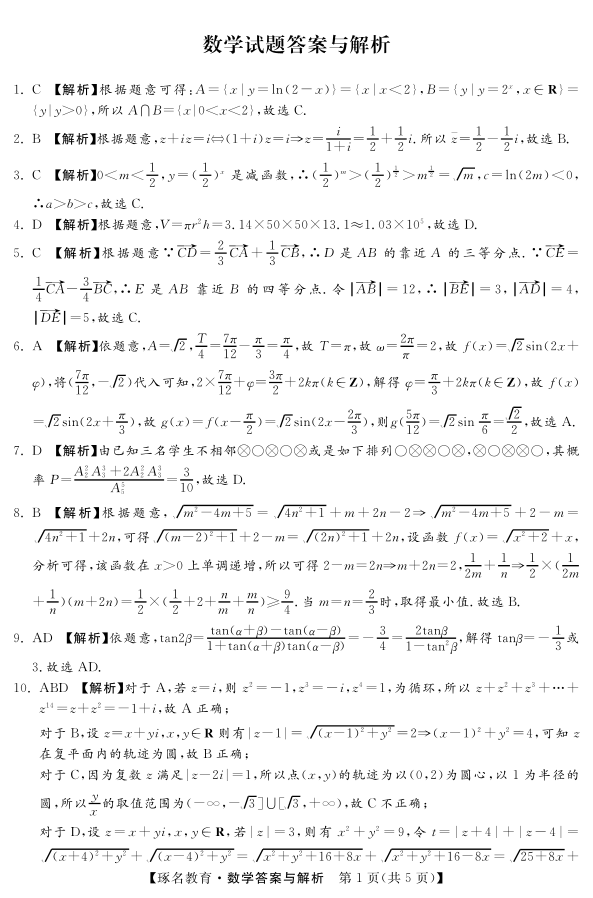 数学试题答案与解析
1. C 【解析】根据题意可得:A={x|y=ln(2-x)}={x|x<2},B={y|y=2ˣ,x∈R}=
{y|y>0},所以 A∩B={x|0<x<2},故选 C.
2. B 【解析】根据题意,z+iz=i⇔(1+i)z=i⇒z=i/(1+i)=1/2+1/2i.所以 z̄=1/2-1/2i,故选 B.
3. C 【解析】0<m<1/2,y=(1/2)ˣ 是减函数,∴(1/2)^m>(1/2)^(1/2)>m^(1/2)=√m,c=ln(2m)<0,
∴a>b>c,故选 C.
4. D 【解析】根据题意,V=πr²h=3.14×50×50×13.1≈1.03×10⁵,故选 D.
5. C 【解析】根据题意∵CD→=2/3CA→+1/3CB→,∴D 是 AB 的靠近 A 的三等分点.∵CE→=
1/4CA→-3/4BC→,∴E 是 AB 靠近 B 的四等分点.令|AB→|=12,∴|BE→|=3,|AD→|=4,
|DE→|=5,故选 C.
6. A 【解析】依题意,A=√2,T/4=7π/12-π/3=π/4,故 T=π,故 ω=2π/π=2,故 f(x)=√2sin(2x+
φ),将(7π/12,-√2)代入可知,2×7π/12+φ=3π/2+2kπ(k∈Z),解得 φ=π/3+2kπ(k∈Z),故 f(x)
=√2sin(2x+π/3),故 g(x)=f(x-π/2)=√2sin(2x-2π/3),则g(5π/12)=√2sin π/6=√2/2,故选 A.
7. D 【解析】由已知三名学生不相邻⊗○⊗○⊗或是如下排列○⊗⊗○⊗,⊗○⊗⊗○,其概
率 P=(A²₂A³₃+2A²₂A³₃)/A⁵₅=3/10,故选 D.
8. B 【解析】根据题意,√(m²-4m+5)=√(4n²+1)+m+2n-2⇒√(m²-4m+5)+2-m=
√(4n²+1)+2n,可得√((m-2)²+1)+2-m=√((2n)²+1)+2n,设函数 f(x)=√(x²+2)+x,
分析可得,该函数在 x>0 上单调递增,所以可得 2-m=2n⇒m+2n=2,1/2m+1/n⇒1/2×(1/2m
+1/n)(m+2n)=1/2×(1/2+2+n/m+m/n)≥9/4.当 m=n=2/3时,取得最小值.故选 B.
9. AD 【解析】依题意,tan2β=(tan(α+β)-tan(α-β))/(1+tan(α+β)tan(α-β))=-3/4=2tanβ/(1-tan²β),解得 tanβ=-1/3或
3.故选 AD.
10. ABD 【解析】对于 A,若 z=i,则 z²=-1,z³=-i,z⁴=1,为循环,所以 z+z²+z³+…+
z¹⁴=z+z²=-1+i,故 A 正确;
对于 B,设 z=x+yi,x,y∈R 则有|z-1|=√((x-1)²+y²)=2⇒(x-1)²+y²=4,可知 z
在复平面内的轨迹为圆,故 B 正确;
对于 C,因为复数 z 满足|z-2i|=1,所以点(x,y)的轨迹为以(0,2)为圆心,以 1 为半径的
圆,所以y/x的取值范围为(-∞,-√3]∪[√3,+∞),故 C 不正确;
对于 D,设 z=x+yi,x,y∈R,若|z|=3,则有 x²+y²=9,令 t=|z+4|+|z-4|=
√((x+4)²+y²)+√((x-4)²+y²)=√(x²+y²+16+8x)+√(x²+y²+16-8x)=√(25+8x)+
【琢名教育·数学答案与解析 第 1 页(共 5 页)】